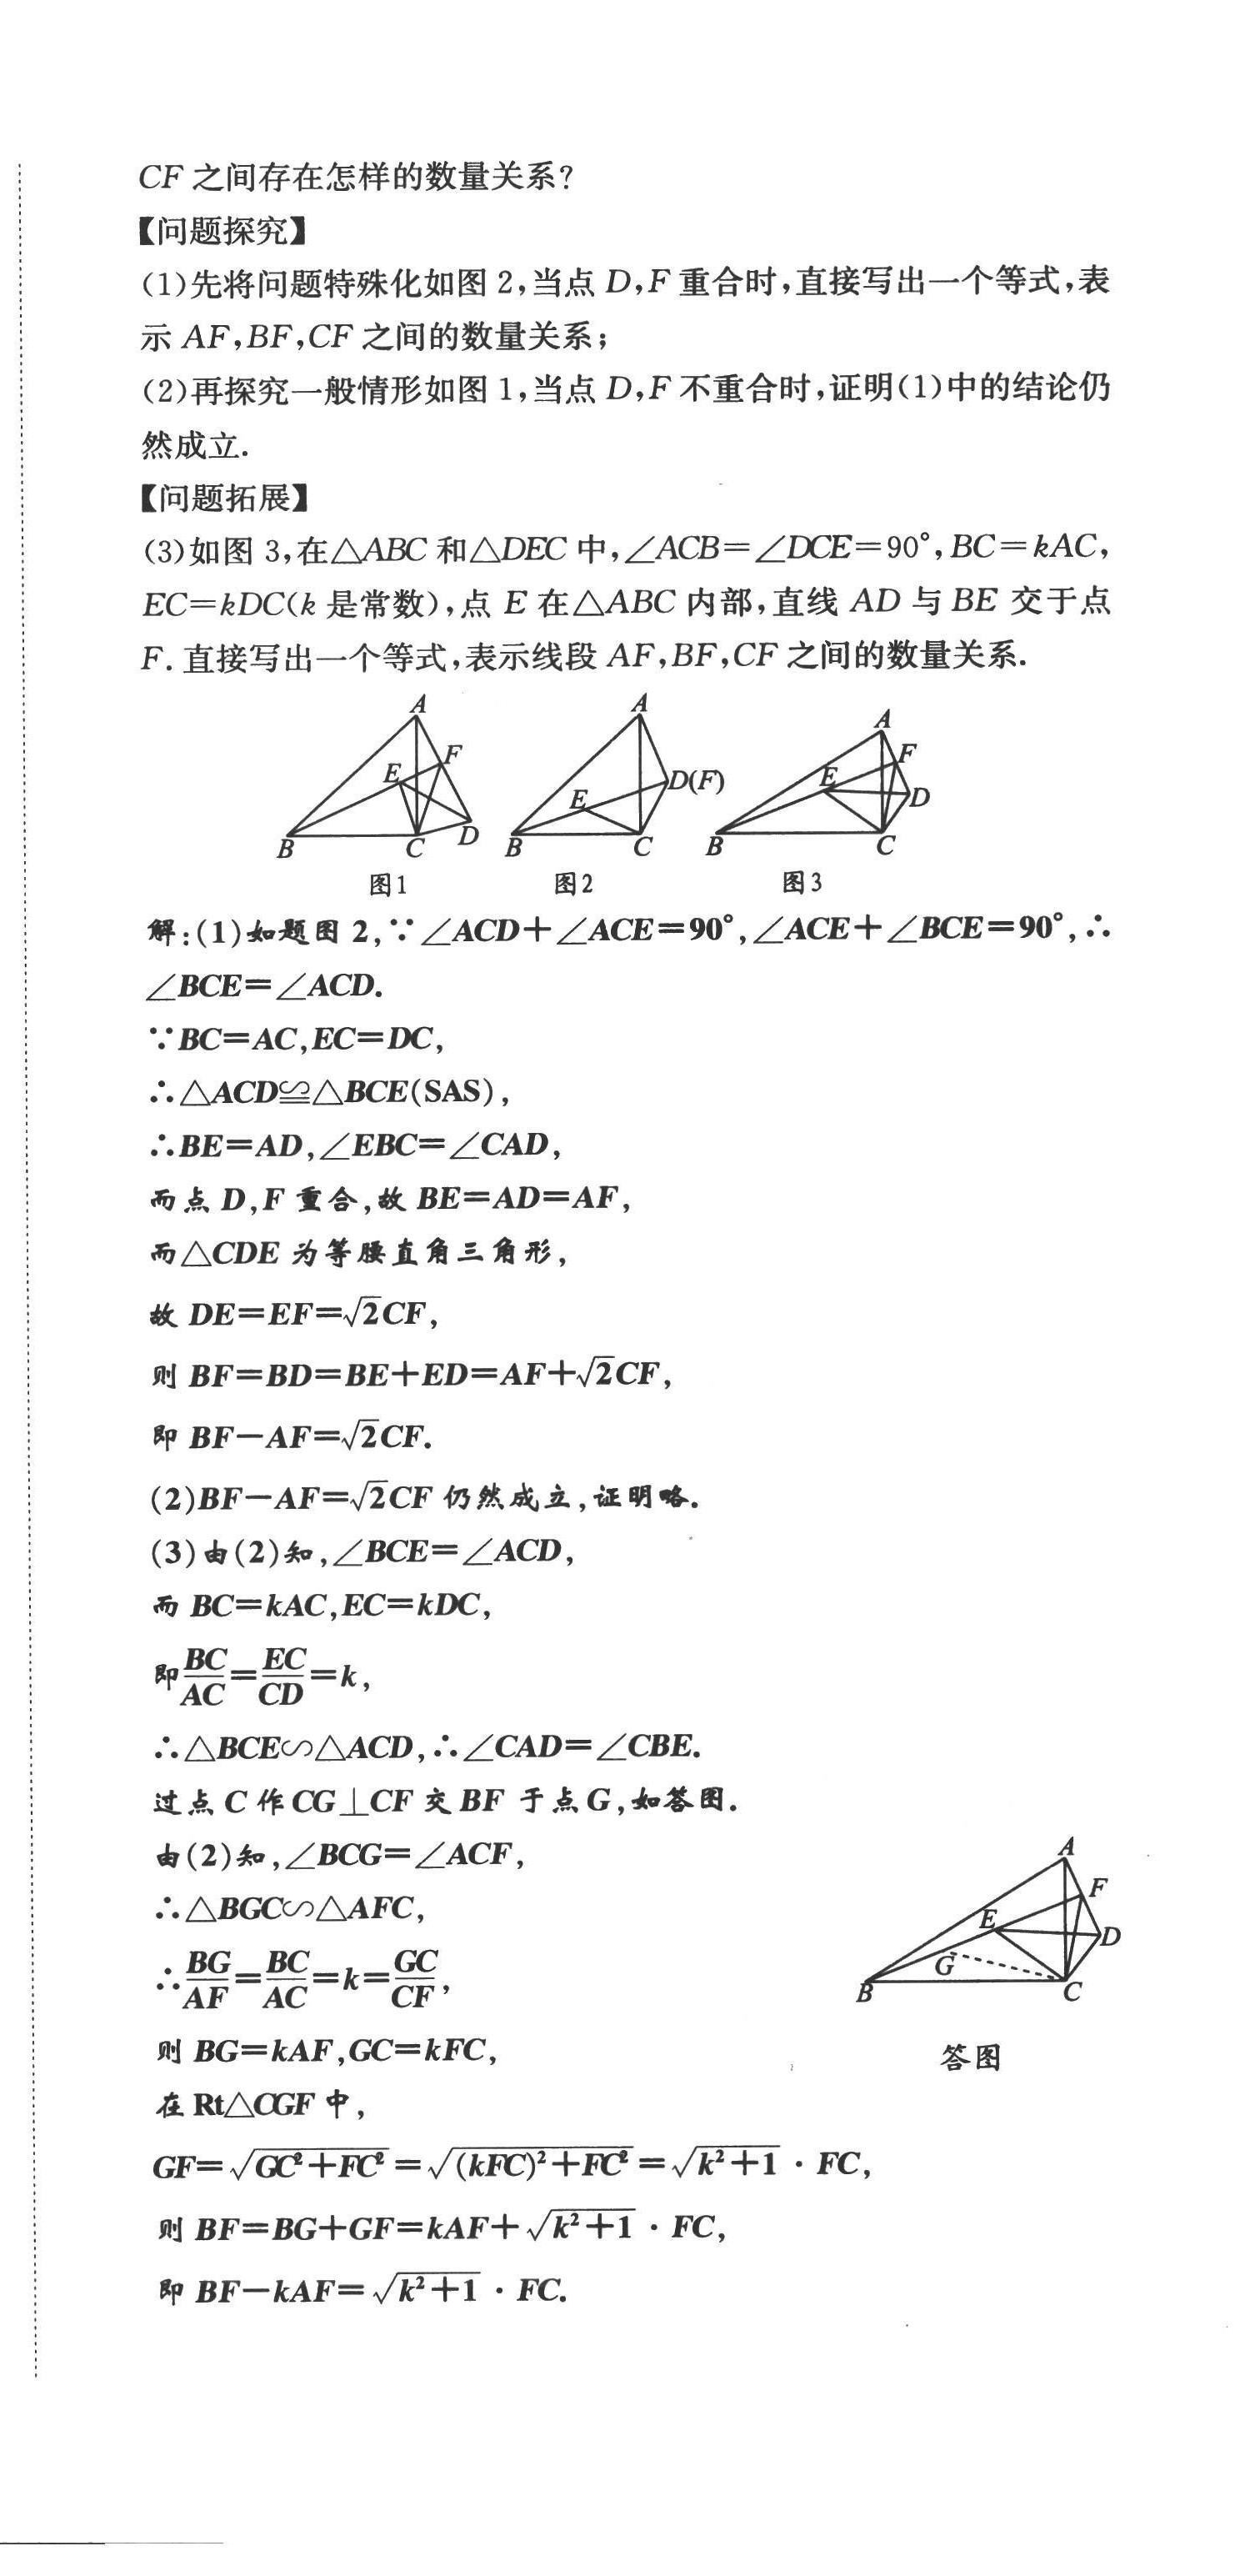 CF 之间存在怎样的数量关系?
【问题探究】
(1)先将问题特殊化如图 2,当点 D,F 重合时,直接写出一个等式,表
示 AF,BF,CF 之间的数量关系;
(2)再探究一般情形如图 1,当点 D,F 不重合时,证明(1)中的结论仍
然成立.
【问题拓展】
(3)如图 3,在△ABC 和△DEC 中,∠ACB=∠DCE=90°,BC=kAC,
EC=kDC(k 是常数),点 E 在△ABC 内部,直线 AD 与 BE 交于点
F. 直接写出一个等式,表示线段 AF,BF,CF 之间的数量关系.
A
F
E
B
C
D
图1
A
D(F)
E
B
C
图2
A
F
E
D
B
C
图3
解:(1)如题图 2,∵∠ACD+∠ACE=90°,∠ACE+∠BCE=90°,∴
∠BCE=∠ACD.
∵BC=AC,EC=DC,
∴△ACD≌△BCE(SAS),
∴BE=AD,∠EBC=∠CAD,
而点 D,F 重合,故 BE=AD=AF,
而△CDE 为等腰直角三角形,
故 DE=EF=√2CF,
则 BF=BD=BE+ED=AF+√2CF,
即 BF-AF=√2CF.
(2)BF-AF=√2CF 仍然成立,证明略.
(3)由(2)知,∠BCE=∠ACD,
而 BC=kAC,EC=kDC,
即BC/AC=EC/CD=k,
∴△BCE∽△ACD,∴∠CAD=∠CBE.
过点 C 作 CG⊥CF 交 BF 于点 G,如答图.
由(2)知,∠BCG=∠ACF,
∴△BGC∽△AFC,
∴BG/AF=BC/AC=k=GC/CF,
则 BG=kAF,GC=kFC,
在 Rt△CGF 中,
GF=√(GC²+FC²)=√((kFC)²+FC²)=√(k²+1)·FC,
则 BF=BG+GF=kAF+√(k²+1)·FC,
即 BF-kAF=√(k²+1)·FC.
A
F
E
D
G
B
C
答图